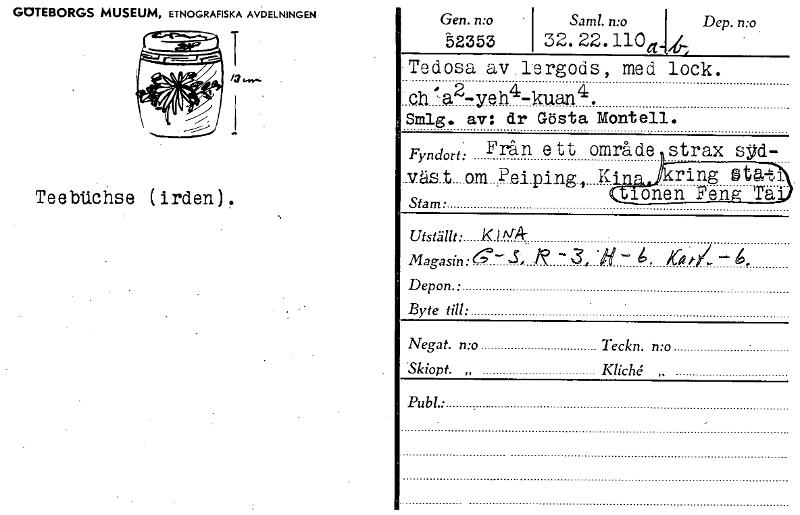 GÖTEBORGS MUSEUM, ETNOGRAFISKA AVDELNINGEN
13 cm
Teebüchse (irden).
Gen. n:o Saml. n:o Dep. n:o
52353 32.22.110 a-b.
Tedosa av lergods, med lock.
ch'a2-yeh4-kuan4.
Smlg. av: dr Gösta Montell.
Fyndort: Från ett område, strax syd-
väst om Peiping, Kina, kring sta-
Stam: tionen Feng Tai
Utställt: KINA
Magasin: G-S. R-3. H-6. Kart.-6.
Depon.:
Byte till:
Negat. n:o Teckn. n:o
Skiopt. „ Kliché „
Publ.: